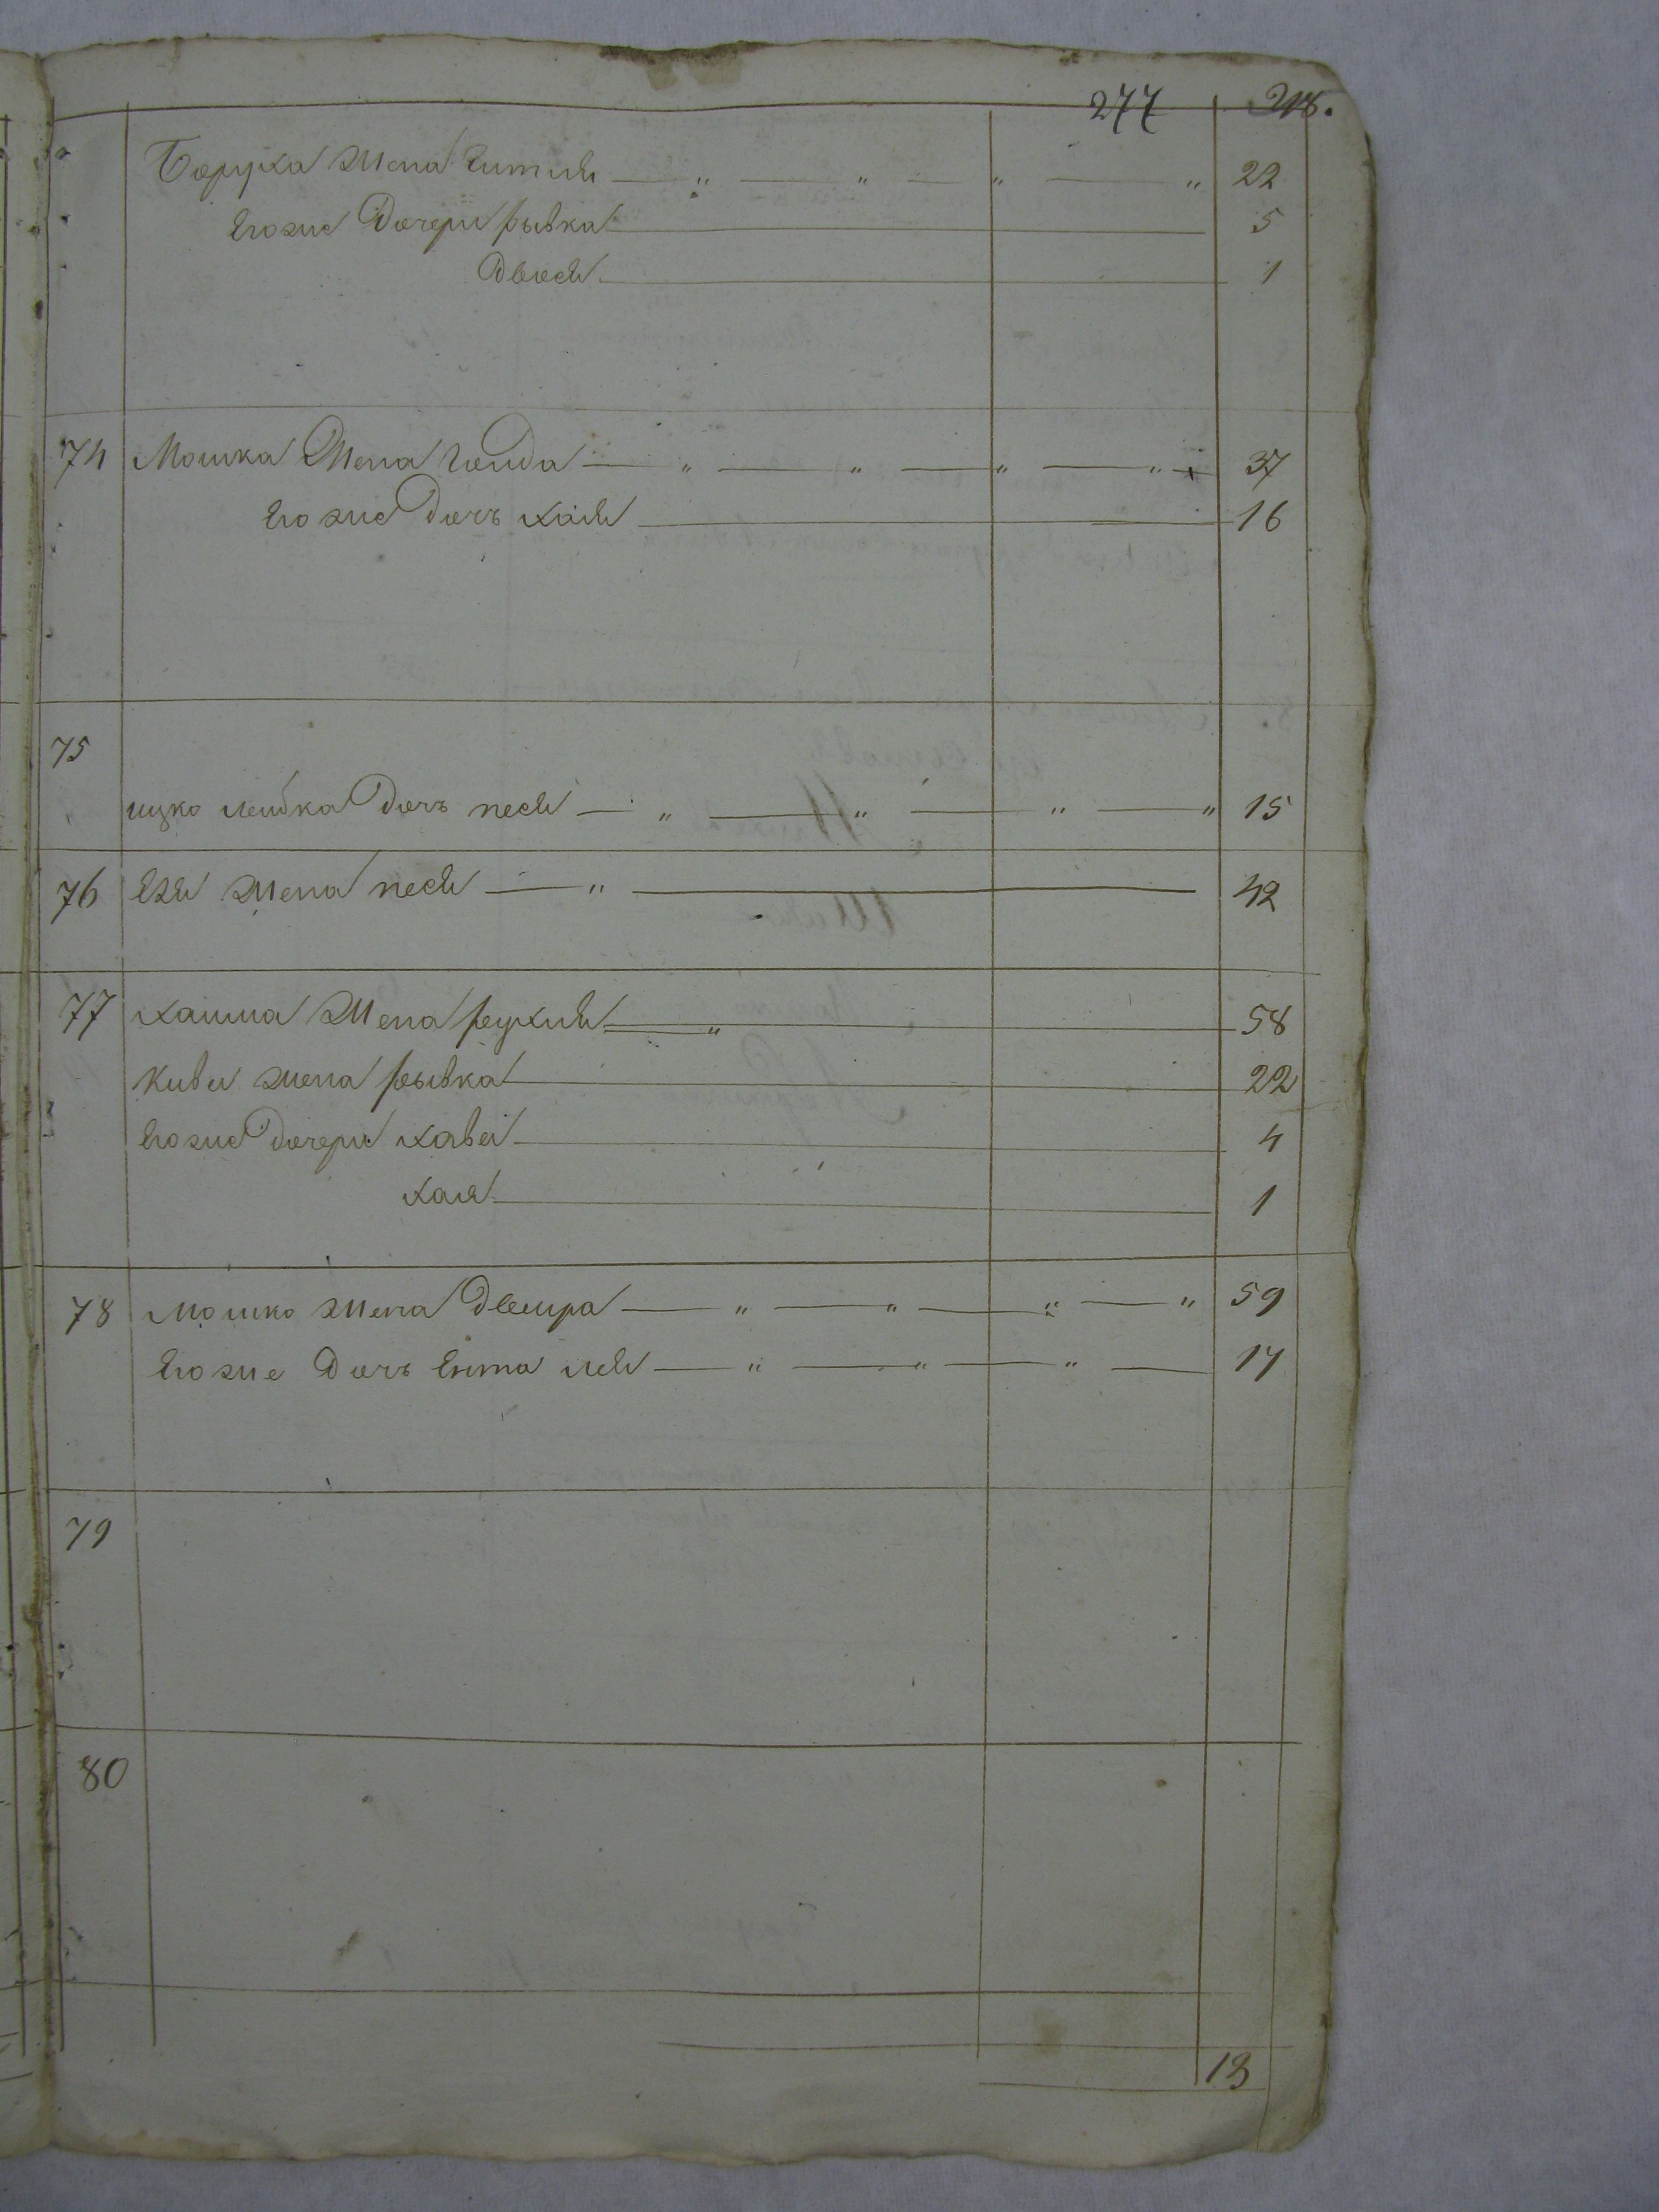 277
Боруха жена Гитля — " — " — " — " 22
Его же дочери Рывка 5
Двося 1
74 Мошка Жена Генда — " — " — " — " 37
Его же дочь Хая 16
75
ицко лейбка дочь песя — " — " — " — " 15
76 жена песя — " 42
77 хаима жена рухля — " 58
Киви жена Рывка 22
Его же дочери хава 4
хая 1
78 мошко жена Двейра — " — " — " — " 59
Его же дочь Ента лея — " — " — " 17
79
80
13